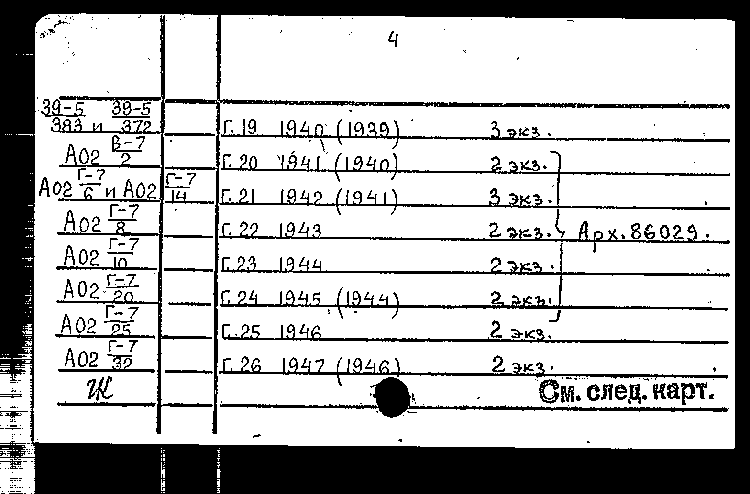 4
39-5/383 и 39-5/372 Г. 19 1940 (1939) 3 экз.
А02 В-7/2 Г. 20 1941 (1940) 2 экз.
А02 Г-7/6 и А02 Г-7/14 Г. 21 1942 (1941) 3 экз.
А02 Г-7/8 Г. 22 1943 2 экз. Арх. 86029.
А02 Г-7/10 Г. 23 1944 2 экз.
А02 Г-7/20 Г. 24 1945 (1944) 2 экз.
А02 Г-7/25 Г. 25 1946 2 экз.
А02 Г-7/32 Г. 26 1947 (1946) 2 экз.
Ж См. след. карт.